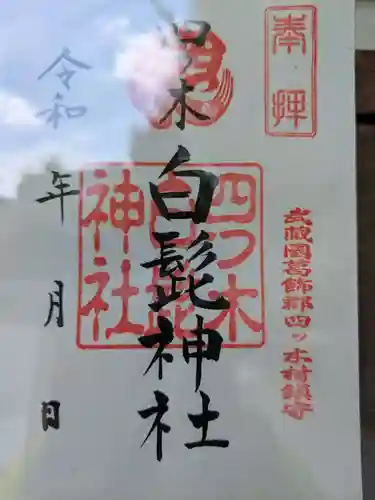 奉拝
武蔵國葛飾郡四ッ木村鎮守
四ツ木
白髭神社
四つ木
白髭
神社
令和
年
月
日